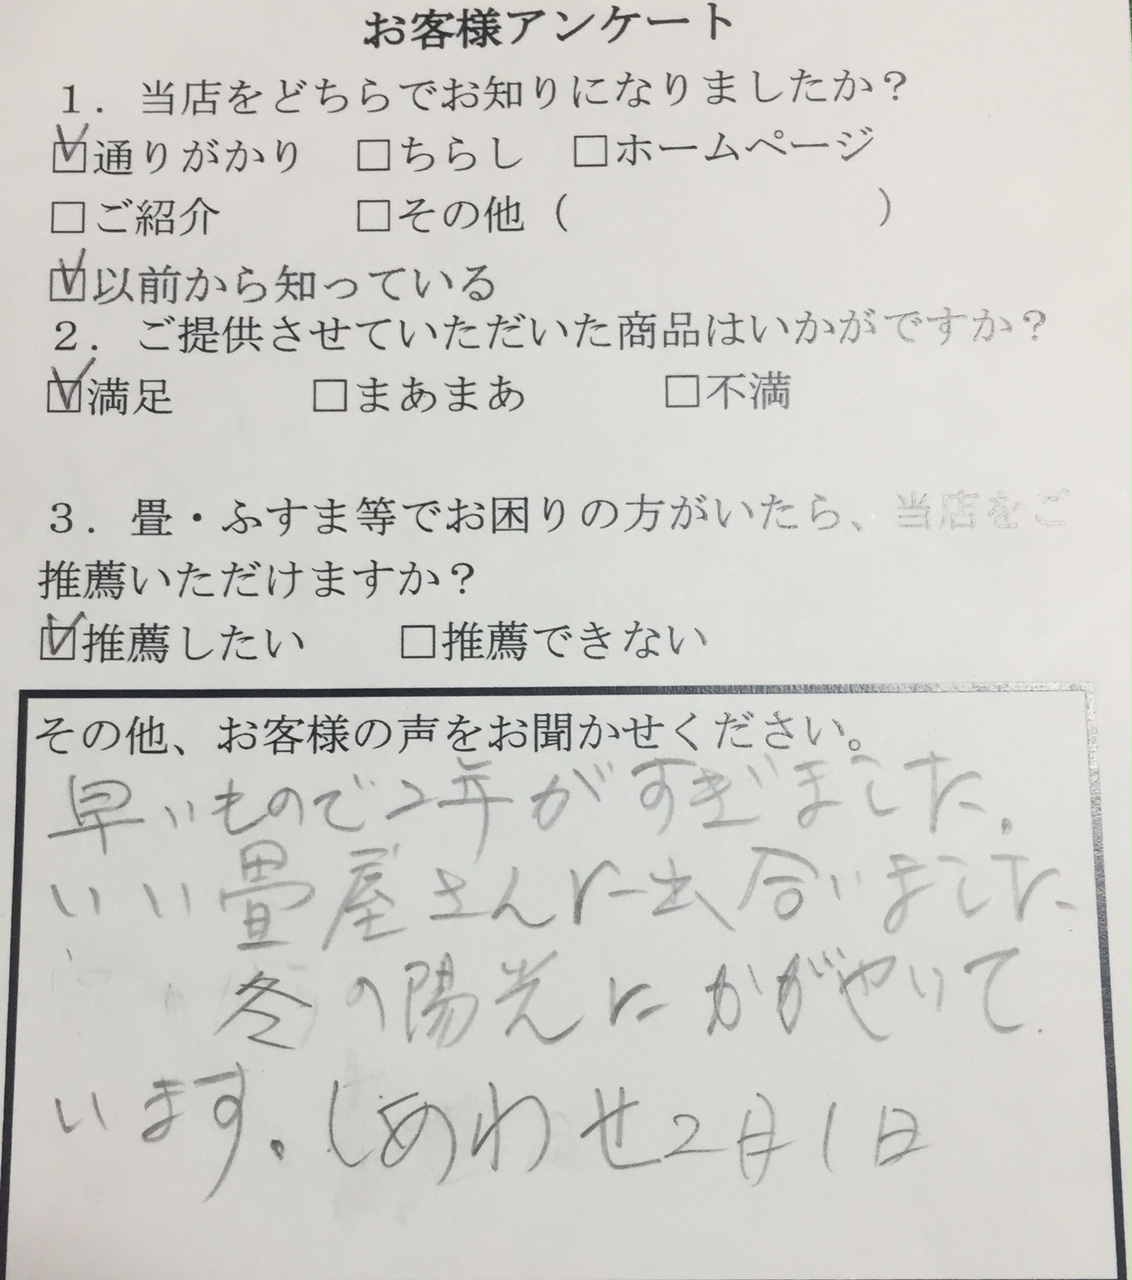 お客様アンケート
１．当店をどちらでお知りになりましたか？
☑通りがかり　□ちらし　□ホームページ
□ご紹介　□その他（　　　　　　　）
☑以前から知っている
２．ご提供させていただいた商品はいかがですか？
☑満足　□まあまあ　□不満
３．畳・ふすま等でお困りの方がいたら、当店をご
推薦いただけますか？
☑推薦したい　□推薦できない
その他、お客様の声をお聞かせください。
早いもので2年がすぎました。
いい畳屋さんに出合いました
冬の陽光にかがやいて
います。しあわせ2月1日